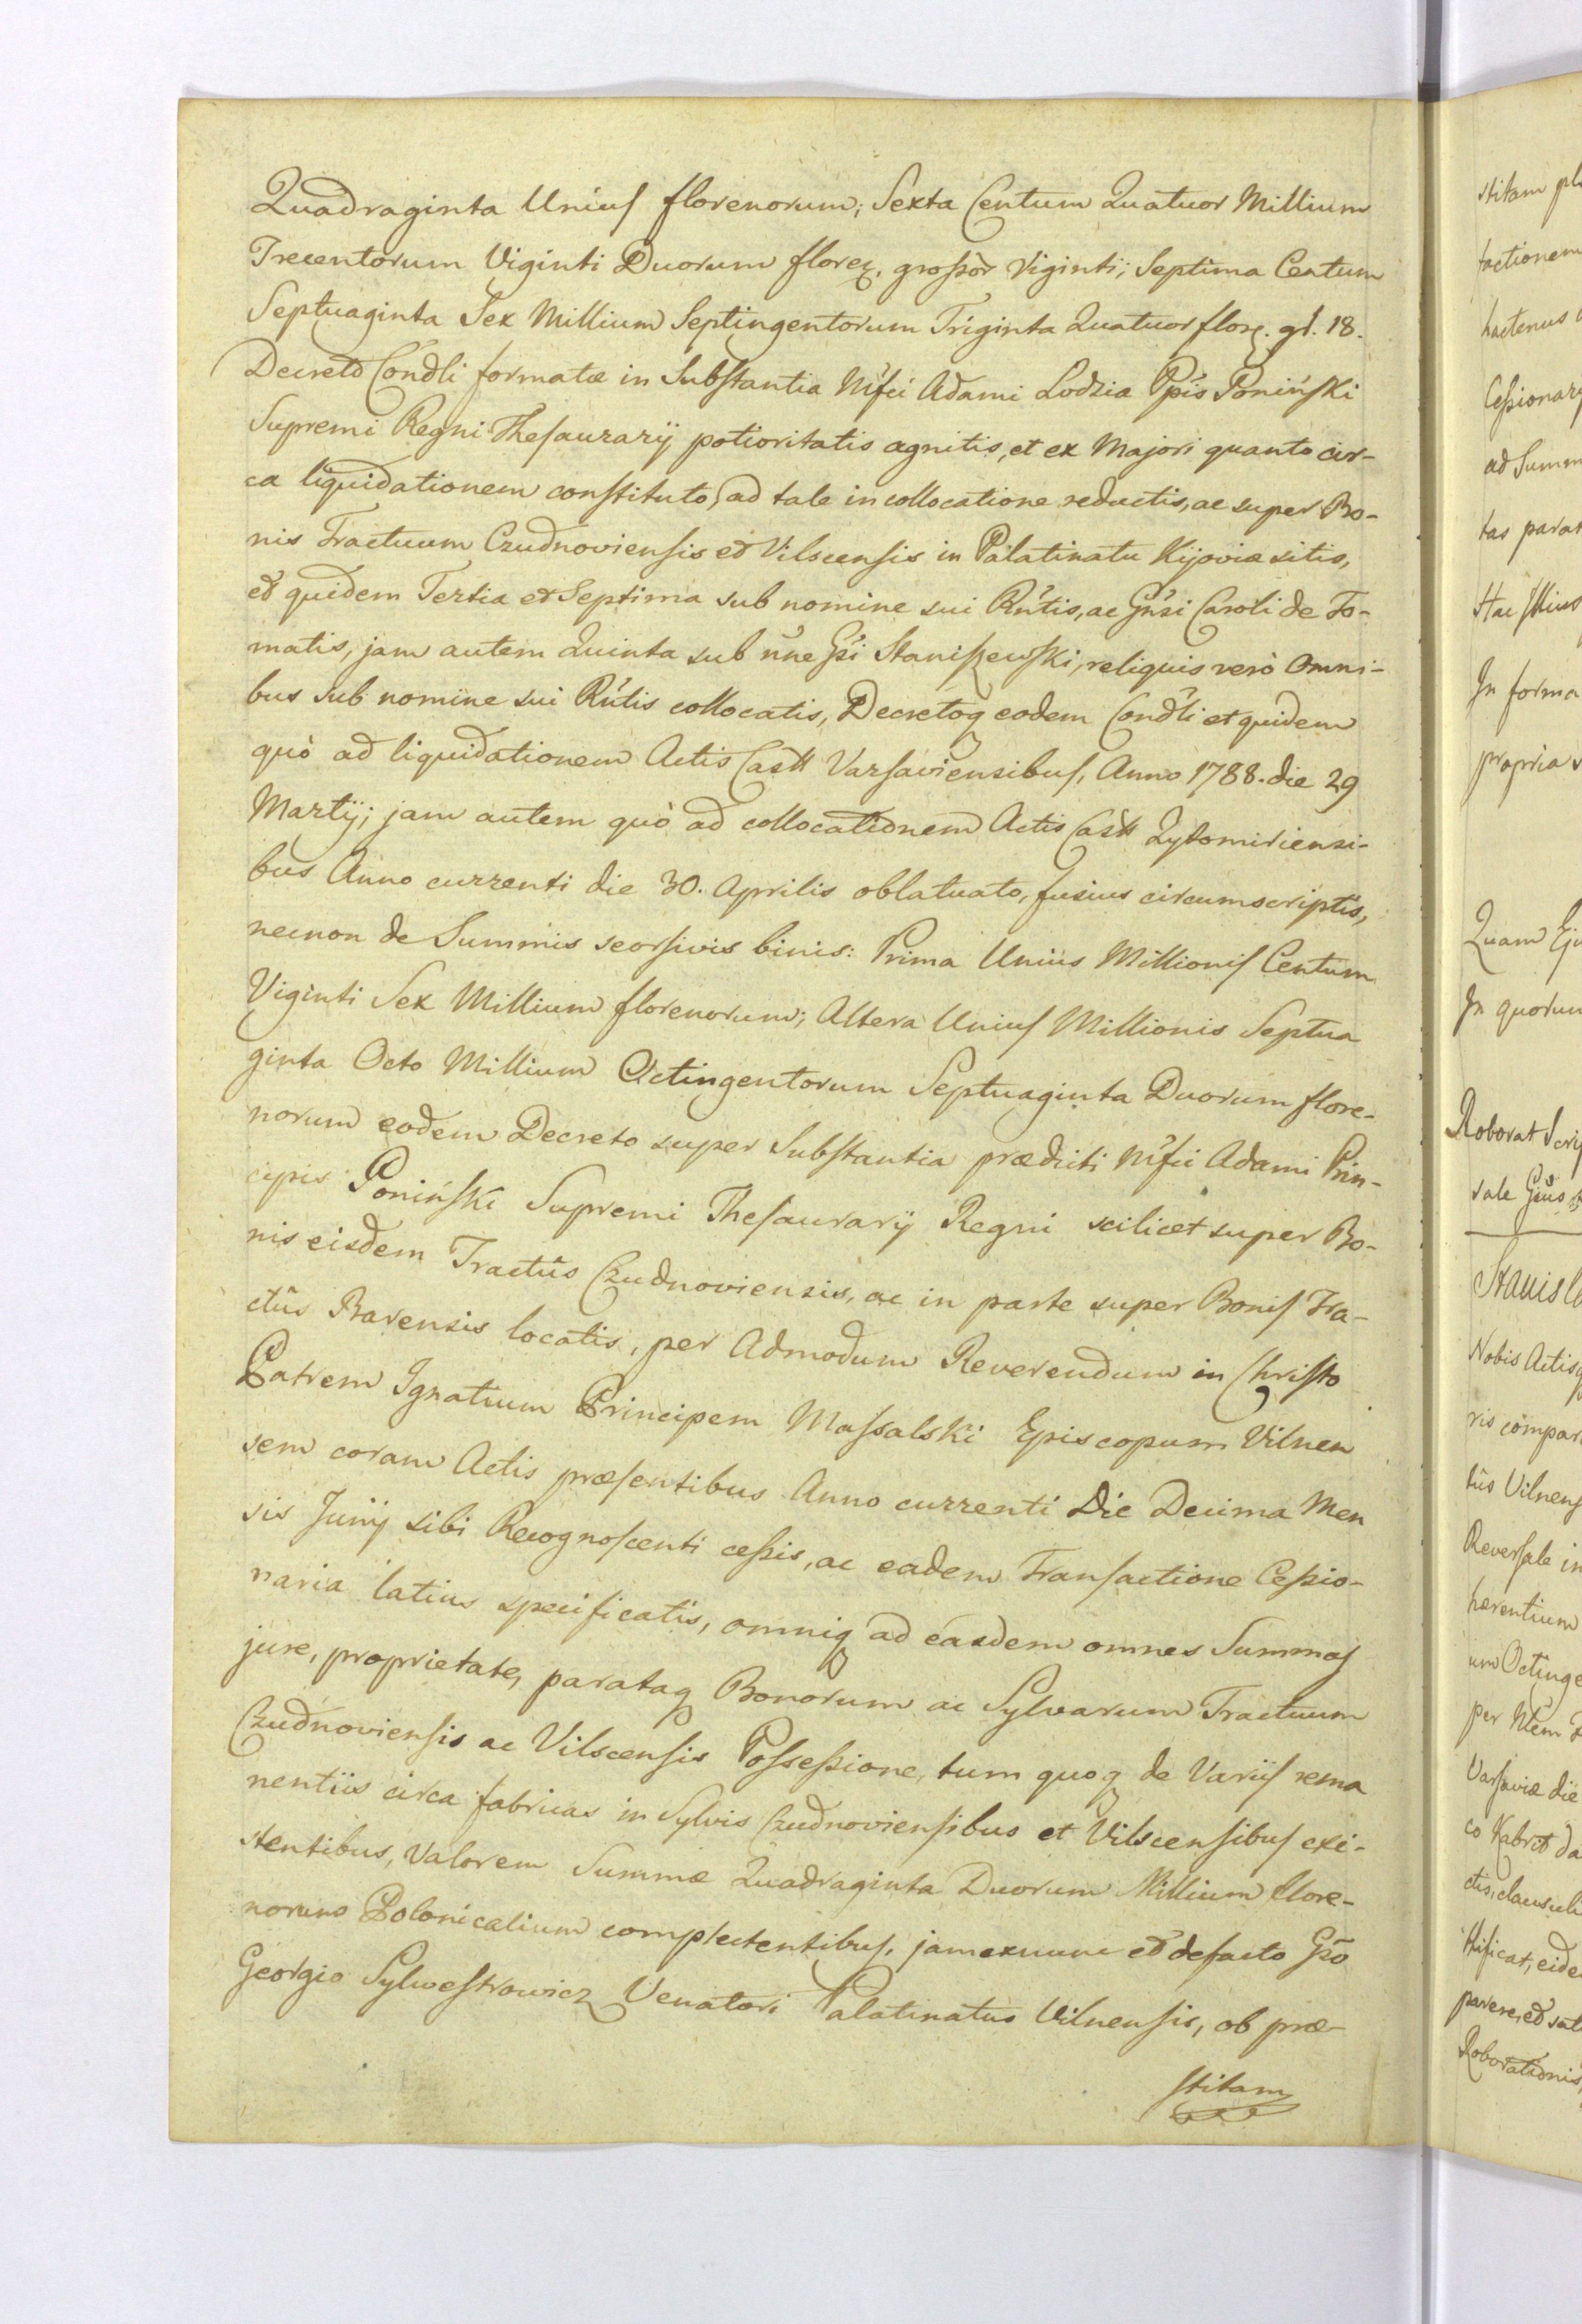 Quadraginta Unius florenorum; Sexta Centum Quatuor Millium
Trecentorum Viginti Duorum floreꝝ, grossor̃ Viginti; Septima Centum
Septuaginta Sex Millium Septingentorum Triginta Quatuor floꝝ. gr. 18.
Decreto Condli formatæ in Substantia Mfci Adami Lodzia Ppis Poniński
Supremi Regni Thesaurarij potioritatis agnitis, et ex Majori quanto cir-
ca liquidationem constituto, ad tale in collocatione reductis, ac super Bo-
nis Tractuum Czudnoviensis et Vilscensis in Palatinatu Kijoviæ sitis,
et quidem Tertia et Septima sub nomine sui Rntis, ac Gnsi Caroli de To-
matis, jam autem Quinta sub nne Gsi Staniszewski, reliquis verò Omni-
bus sub nomine sui Rntis collocatis, Decretoq eodem Condli et quidem
quò ad liquidationem Actis Castt Varsaviensibus, Anno 1788. die 29
Martij; jam autem quò ad collocationem Actis Castt Zytomiriensi-
bus Anno currenti die 30. Aprilis oblatuato, fusius circumscriptis,
necnon de Summis seorsivis binis: Prima Unius Millionis Centum
Viginti Sex Millium florenorum; Altera Unius Millionis Septua
ginta Octo Millium Octingentorum Septuaginta Duorum flore-
norum eodem Decreto super Substantia prædicti Mfci Adami Prin-
cipis Poniński Supremi Thesaurarij Regni scilicet super Bo-
nis eisdem Tractûs Czudnoviensis, ac in parte super Bonis Tra-
ctûs Barensis locatis, per Admodum Reverendum in Christo
Patrem Ignatium Principem Massalski Episcopum Vilnen
sem coram Actis præsentibus Anno currenti Die Decima Men
sis Junij sibi Recognoscenti cessis, ac eadem Transactione Cessio-
naria latius specificatis, omniq ad easdem omnes Summas
jure, proprietate, parataq Bonorum ac Sylvarum Tractuum
Czudnoviensis ac Vilscensis Possessione, tum quoq de Variis rema
nentiis circa fabricas in Sylvis Czudnoviensibus et Vilscensibus exi-
stentibus, Valorem Summæ Quadraginta Duorum Millium flore-
norum Polonicalium complectentibus, jam exnunc et defacto Gso
Georgio Sylwestrowicz Venatori Palatinatus Vilnensis, ob præ-
stitam
stitam
factionem
hactenus
Cessionary
ad Summ
tas parat
Hac
In forma
propria
Quam Eju
In quorum
Roborat Scrip
sale
Stanisl
Nobis Actisq
ris compar
tûs Vilnens
Reversale in
hærentium
um Octinge
per
Varsaviæ die
co
ctis, clausuli
stificat, eide
parere, et sat
Roborationis